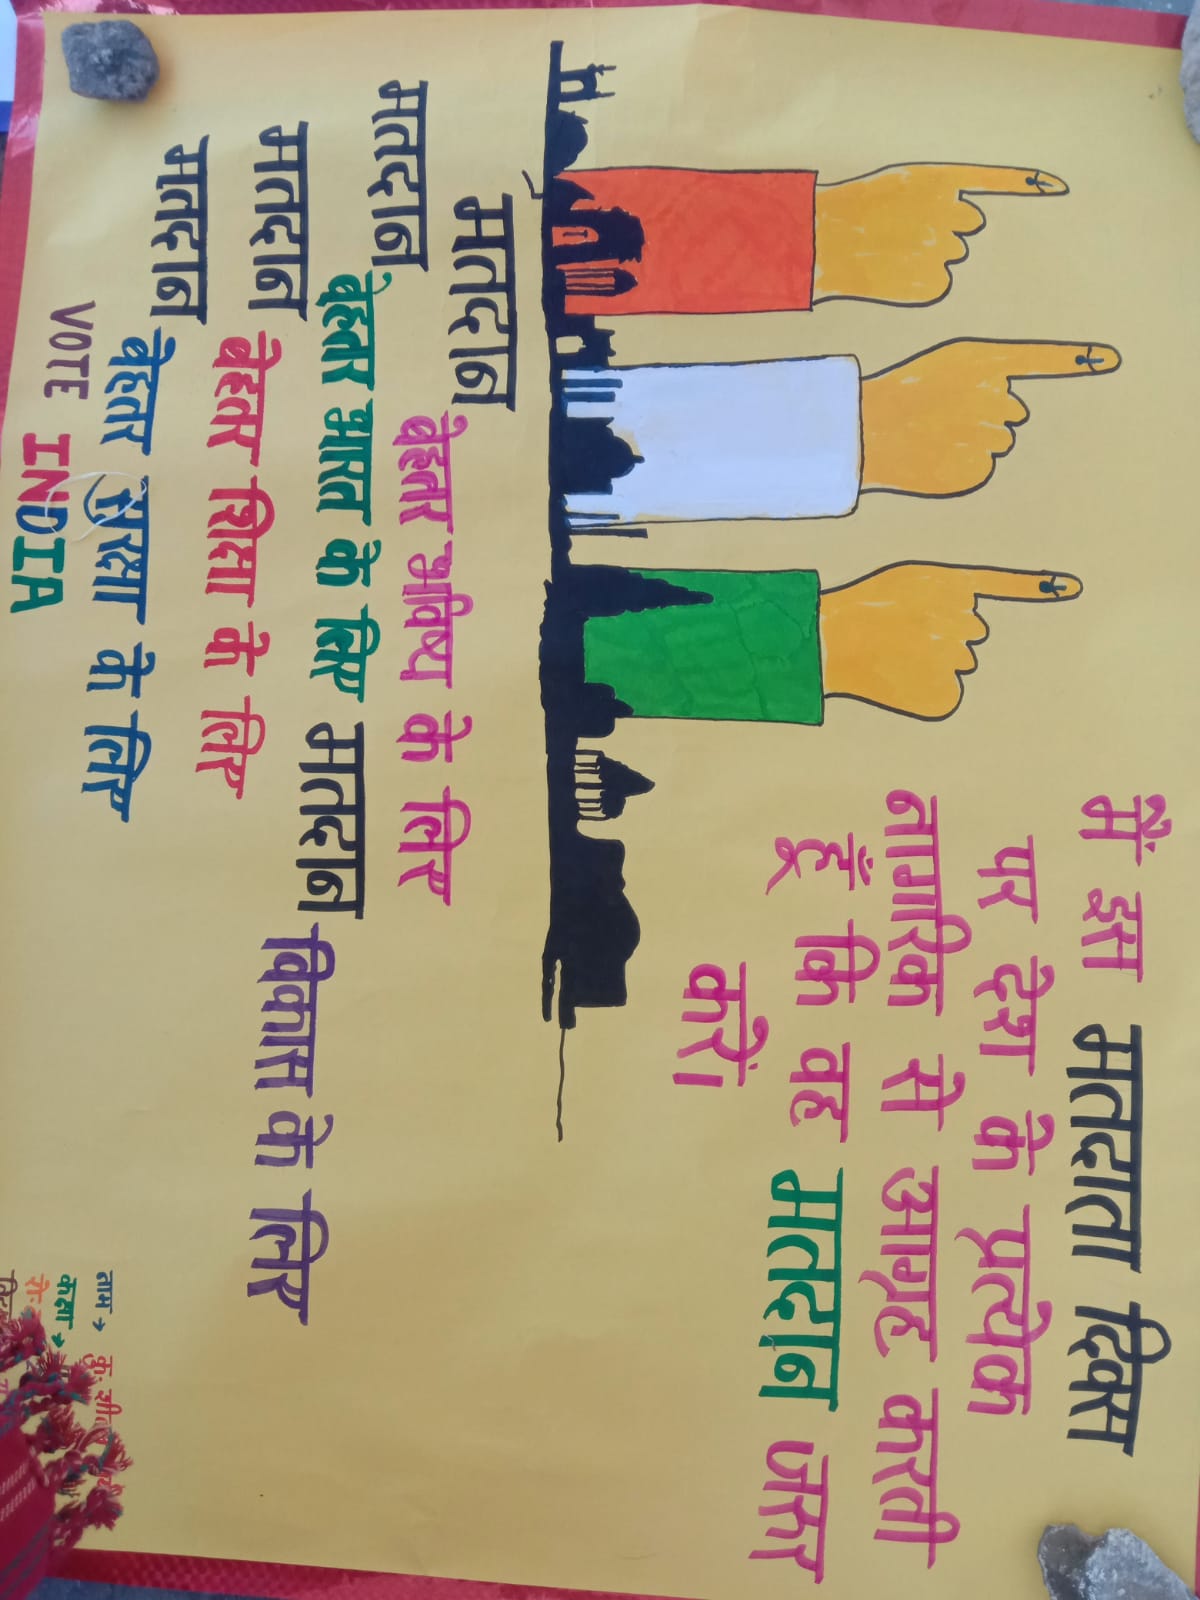 मैं इस मतदाता दिवस
पर देश के प्रत्येक
नागरिक से आग्रह करती
हूँ कि वह मतदान जरूर
करें।
मतदान
बेहतर भविष्य के लिए
मतदान
बेहतर भारत के लिए
मतदान
विकास के लिए
मतदान
बेहतर शिक्षा के लिए
मतदान
बेहतर सुरक्षा के लिए
VOTE
INDIA
नाम → कु.
कक्षा →